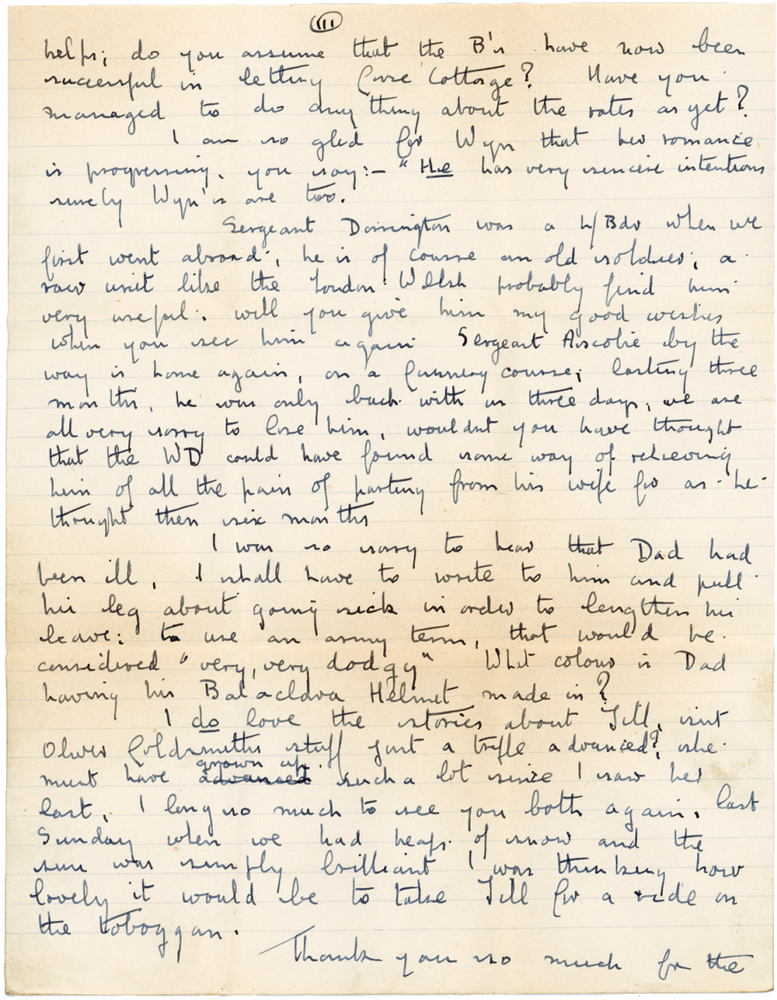 (III)
helps; do you assume that the B's have now been
successful in letting Cottage? Have you
managed to do anything about the rates as yet?
I am so glad for Wyn that her romance
is progressing, you say:- "He has very sincere intentions
surely Wyn's are too.
Sergeant Dorrington was a L/Bdr when we
first went abroad, he is of course an old soldier; a
raw unit like the London Welsh probably find him
very useful. will you give him my good wishes
when you see him again Sergeant by the
way is home again, on a Gunnery course; lasting three
months, he was only back with us three days, we are
all very sorry to lose him, wouldnt you have thought
that the WD could have found some way of relieving
him of all the pain of parting from his wife for as he
thought then six months
I was so sorry to hear that Dad had
been ill, I shall have to write to him and pull
his leg about going sick in order to lengthen his
leave: to use an army term, that would be
considered "very, very dodgy" What colour is Dad
having his Balaclava Helmet made in?
I do love the stories about Jill, isnt
Oliver Goldsmiths stuff just a trifle advanced?, she
must have advanced grown up such a lot since I saw her
last, I long so much to see you both again, last
Sunday when we had heaps of snow and the
sun was simply brilliant I was thinking how
lovely it would be to take Jill for a ride on
the toboggan.
Thank you so much for the